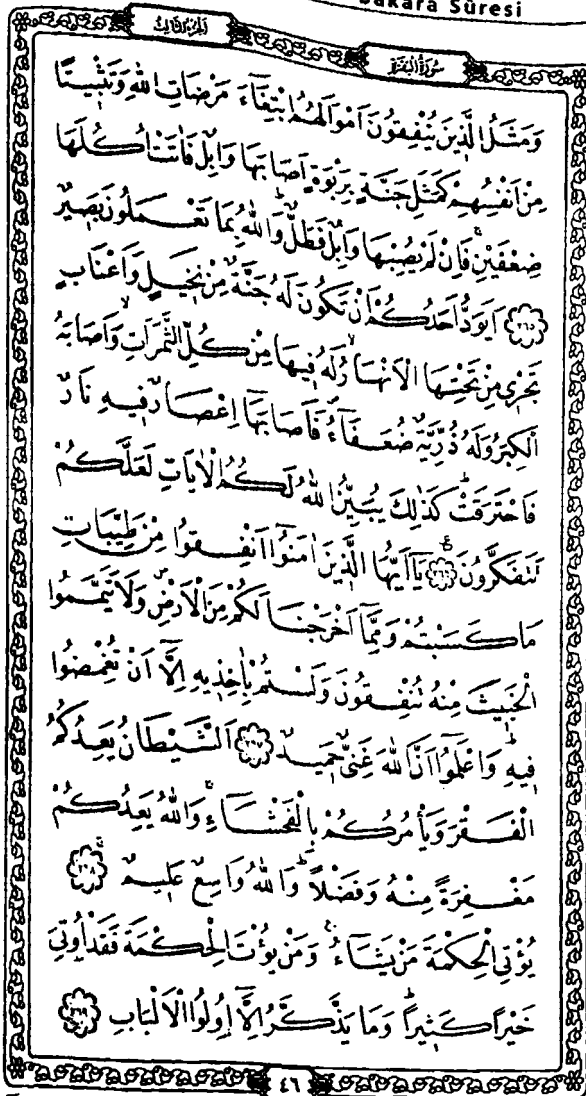 Bakara Sûresi
اَلْجُزْءُ الثَّالِثُ
سُورَةُ الْبَقَرَةِ
وَمَثَلُ الَّذ۪ينَ يُنْفِقُونَ اَمْوَالَهُمُ ابْتِغَٓاءَ مَرْضَاتِ اللّٰهِ وَتَثْب۪يتًا
مِنْ اَنْفُسِهِمْ كَمَثَلِ جَنَّةٍ بِرَبْوَةٍ اَصَابَهَا وَابِلٌ فَاٰتَتْ اُكُلَهَا
ضِعْفَيْنِۚ فَاِنْ لَمْ يُصِبْهَا وَابِلٌ فَطَلٌّۜ وَاللّٰهُ بِمَا تَعْمَلُونَ بَص۪يرٌ
﴿٢٦٥﴾ اَيَوَدُّ اَحَدُكُمْ اَنْ تَكُونَ لَهُ جَنَّةٌ مِنْ نَخ۪يلٍ وَاَعْنَابٍ
تَجْر۪ي مِنْ تَحْتِهَا الْاَنْهَارُۙ لَهُ ف۪يهَا مِنْ كُلِّ الثَّمَرَاتِۙ وَاَصَابَهُ
الْكِبَرُ وَلَهُ ذُرِّيَّةٌ ضُعَفَٓاءُۖ فَاَصَابَهَٓا اِعْصَارٌ ف۪يهِ نَارٌ
فَاحْتَرَقَتْۜ كَذٰلِكَ يُبَيِّنُ اللّٰهُ لَكُمُ الْاٰيَاتِ لَعَلَّكُمْ
تَتَفَكَّرُونَ۟ ﴿٢٦٦﴾ يَٓا اَيُّهَا الَّذ۪ينَ اٰمَنُٓوا اَنْفِقُوا مِنْ طَيِّبَاتِ
مَا كَسَبْتُمْ وَمِمَّٓا اَخْرَجْنَا لَكُمْ مِنَ الْاَرْضِۖ وَلَا تَيَمَّمُوا
الْخَب۪يثَ مِنْهُ تُنْفِقُونَ وَلَسْتُمْ بِاٰخِذ۪يهِ اِلَّٓا اَنْ تُغْمِضُوا
ف۪يهِۜ وَاعْلَمُٓوا اَنَّ اللّٰهَ غَنِيٌّ حَم۪يدٌ ﴿٢٦٧﴾ اَلشَّيْطَانُ يَعِدُكُمُ
الْفَقْرَ وَيَأْمُرُكُمْ بِالْفَحْشَٓاءِۚ وَاللّٰهُ يَعِدُكُمْ
مَغْفِرَةً مِنْهُ وَفَضْلًاۜ وَاللّٰهُ وَاسِعٌ عَل۪يمٌۚ ﴿٢٦٨﴾
يُؤْتِي الْحِكْمَةَ مَنْ يَشَٓاءُۚ وَمَنْ يُؤْتَ الْحِكْمَةَ فَقَدْ اُو۫تِيَ
خَيْرًا كَث۪يرًاۜ وَمَا يَذَّكَّرُ اِلَّٓا اُو۬لُوا الْاَلْبَابِ ﴿٢٦٩﴾
٤٦